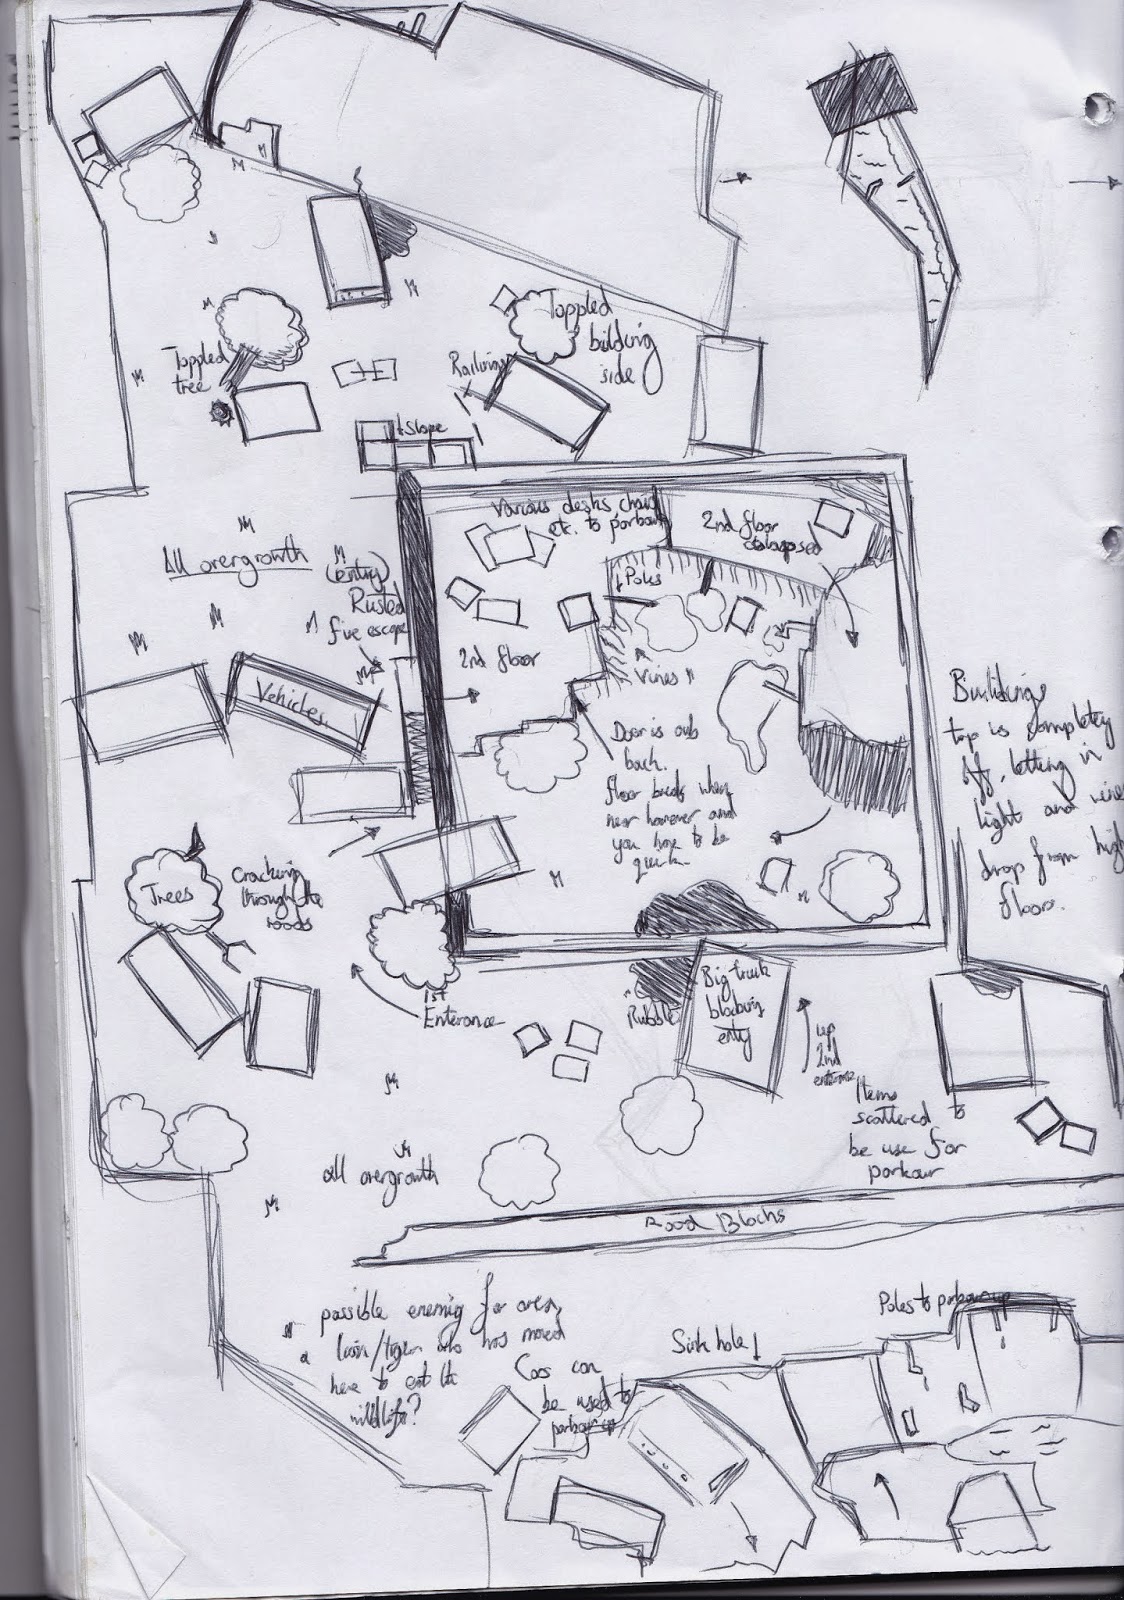 Toppled
building
side
Toppled
tree
Railings
Slope
Various desks chairs
etc. to parkour
2nd floor
collapsed
All overgrowth
(entry)
Rusted
fire escape
Poles
2nd floor
Vines
Vehicles
Door is out
back.
floor breaks when
near however and
you have to be
quick.
Buildings
top is completely
off, letting in
light and vines
drop from high
floor.
Trees
Cracking
through the
roads
1st
Enterance
Rubble
Big truck
blocking
entry
up
2nd
Items
scattered to
be use for
parkour
All overgrowth
Road Blocks
possible enemy for area,
a lion/tiger who has moved
here to eat the
wildlife?
Cars can
be used to
parkour up
Sink hole
Poles to parkour up